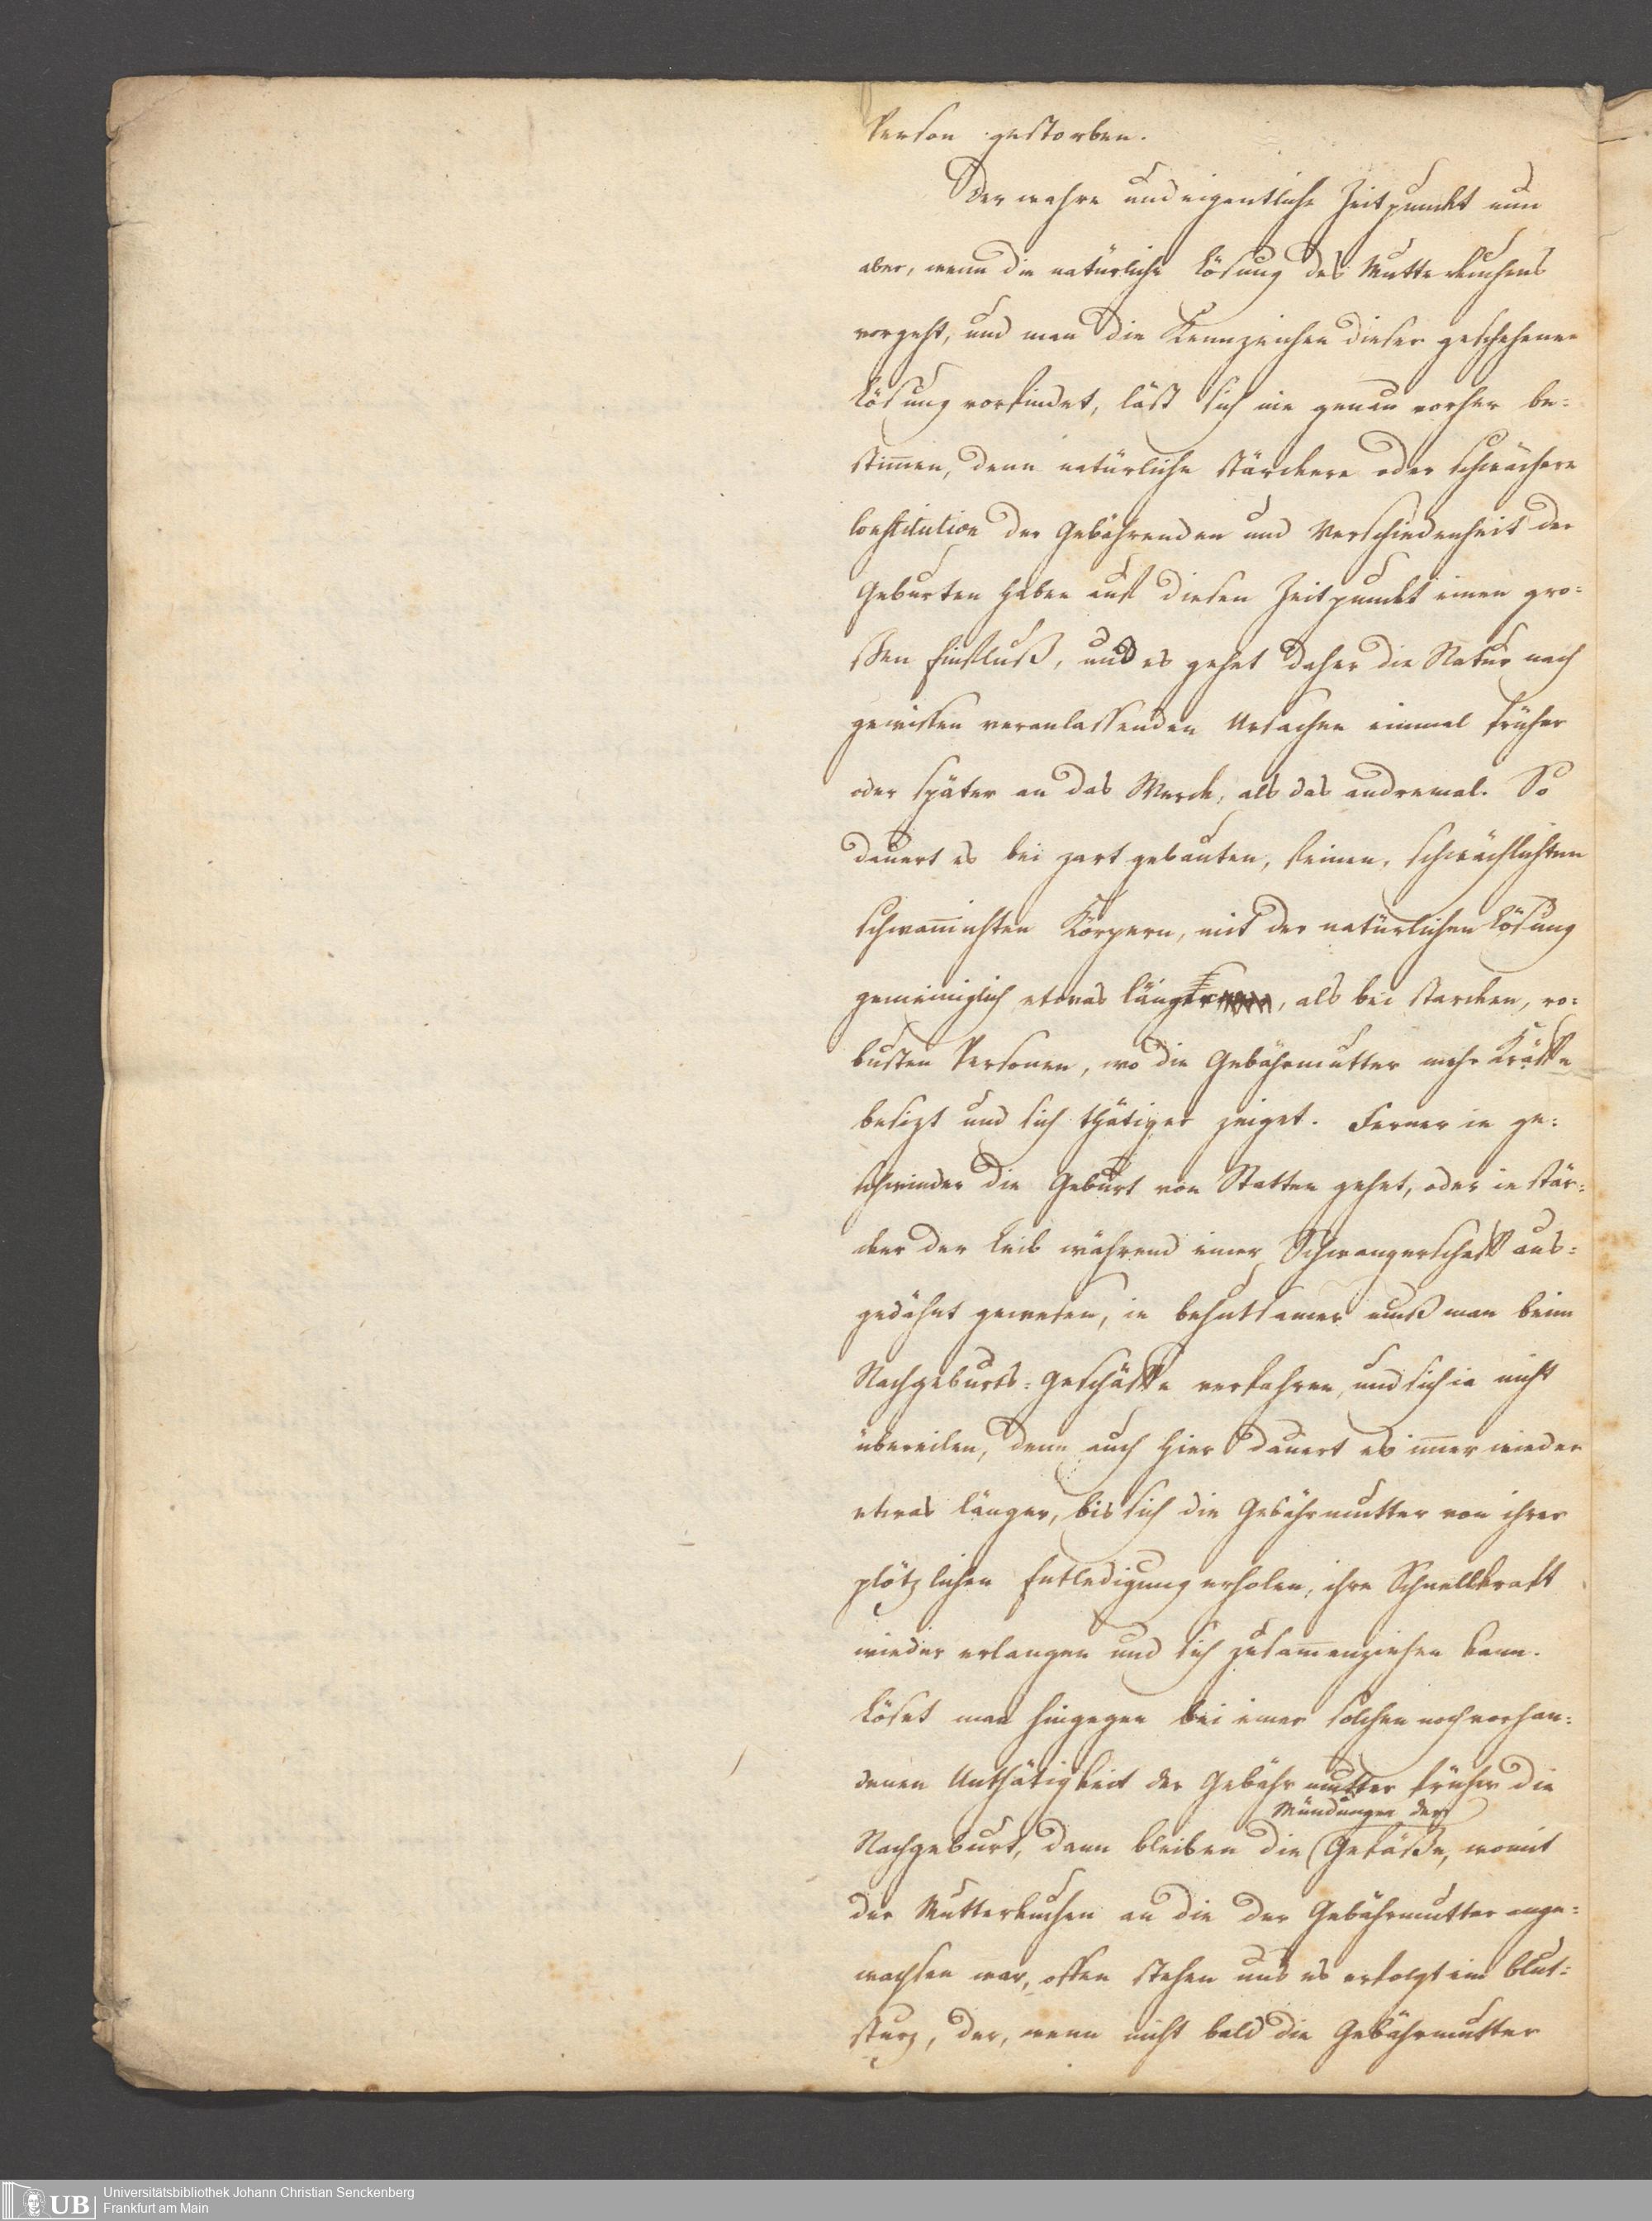 Person gestorben.
Der wahre und eigentliche Zeitpunckt nun
aber, wenn die natürliche Lösung des Mutterkuchens
vorgeht, und man die Kennzeichen dieser geschehenen
Lösung vorfindet, läst sich nie genau vorher be=
stim̄en, denn natürliche stärckere oder schwächere
Constitution der Gebährenden und Verschiedenheit der
Geburten haben auf diesen Zeitpunckt einen gro=
ßen Einfluß, und es gehet daher die Natur nach
gewissen veranlassenden Ursachen einmal früher
oder später an das Werck, als das andremal. So
dauert es bei zart gebauten, feinen, schwächlichten
schwam̄ichten Körpern, mit der natürlichen Lösung
gemeiniglich etwas länger, als bei starcken, ro=
busten Personen, wo die Gebährmutter mehr Kräffte
besizt und sich thätiger zeiget. Ferner ie ge=
schwinder die Geburt von Statten gehet, oder ie stär=
cker der Leib während einer Schwangerschafft aus=
gedähnt gewesen, ie behutsamer muß man beim
Nachgeburts=Geschäffte verfahren, und sich ia nicht
übereilen, denn auch hier dauert es im̄er wieder
etwas länger, bis sich die Gebährmutter von ihrer
plötzlichen Entledigung erholen, ihre Schnellkrafft
wieder erlangen und sich zusam̄enziehen kann.
Löset man hingegen bei einer solchen noch vorhan=
denen Unthätigkeit der Gebährmutter früher die
Mündungen der
Nachgeburt, dann bleiben die Gefäße, womit
der Mutterkuchen an die der Gebährmutter ange=
wachsen war, offen stehen und es erfolgt ein Blut=
sturz, der, wenn nicht bald die Gebährmutter
UB
Universitätsbibliothek Johann Christian Senckenberg
Frankfurt am Main